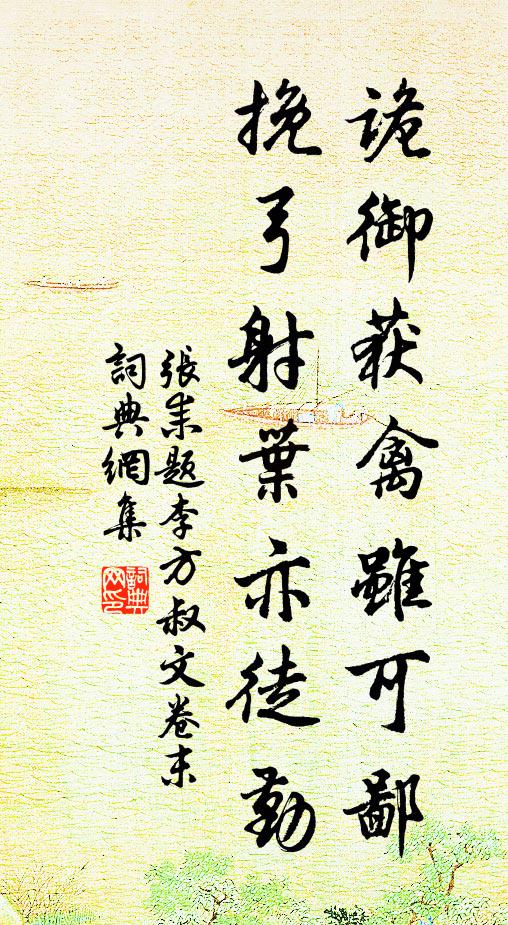 詭御获禽雖可鄙
挽弓射葉亦徒勤
張耒題李方叔文卷末
詞典網集
詞典網印